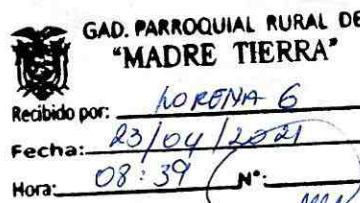 GAD. PARROQUIAL RURAL DE
"MADRE TIERRA"
Recibido por: LORENA G
Fecha: 23/04/2021
Hora: 08:39 N°: